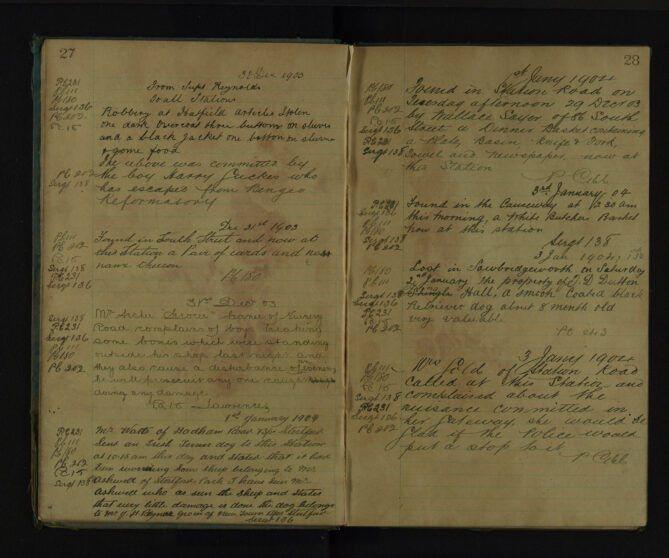 27
31 Dec 1903
From Supt Reynolds
to all Stations
Robbery at Hatfield Articles Stolen
One dark overcoat three buttons on sleeves
and a black Jacket one button on sleeves
& some food
The above was committed by
the boy Harry Juckes who
has escaped from Bengeo
Reformatory
PC 231
PC 111
PC 180
Sergt 136
PC 202
PC 15
PC 202
Sergt 138
Dec 31st 1903
Found in South Street and now at
this Station a Pair of cards and no
name thereon
PC 180
PC 111
PC 202
PC 15
Sergt 138
PC 231
Sergt 136
31st Decr 03
Mr Archer Grocer corner of
Road complains of boys breaking
some boxes which were standing
outside his shop last night and
they also cause a disturbance of evenings
he will prosecute any one caught
doing any damage
PC 15 Lawrence
Sergt 138
PC 231
PC 111
Sergt 136
PC 15
PC 180
PC 202
1st January 1904
Mr. Watts of Hadham Road Bps Stortford
Sent an Irish Terrier dog to this Station
at 10.15 am this day and states that it had
been worrying some sheep belonging to Mr
Ashwell of Stortford Park I have seen Mr.
Ashwell who as seen the sheep and states
that very little damage is done the dog belongs
to Mr
Sergt 136
PC 231
PC 111
PC 180
PC 202
PC 15
Sergt 138
28
1st Jany 1904
Found in Station Road on
Tuesday afternoon 29 Decr 03
by Wallace Sayer of 56 South
Street a Dinner Basket containing
a Plate, Basin, Knife & Fork,
Towel and Newspaper, now at
this Station
P. Cobb
PC 180
PC 111
PC 202
PC 15
Sergt 136
PC 231
Sergt 138
3rd January 04
Found in the Causeway at 10.30 am
this morning, a White Butchers Basket
now at this station
Sergt 138
PC 231
Sergt 136
PC 111
PC 180
Sergt 138
PC 202
3 Jan 1904
Lost in Sawbridgeworth on Saturday
2nd January the property of J. D. Dutton
Shingle Hall, a smooth coated black
Retriever dog about 8 month old
very valuable
PC 243
PC 180
PC 111
Sergt 138
Sergt 136
PC 231
PC 202
3 Jany 1904
Mrs Gold of Station Road
called at this Station and
complained about the
nuisance committed in
her Gateway, she would be
glad if the Police would
put a stop to it
P. Cobb
PC 111
PC 180
PC 15
Sergt 138
PC 231
Sergt 136
PC 202